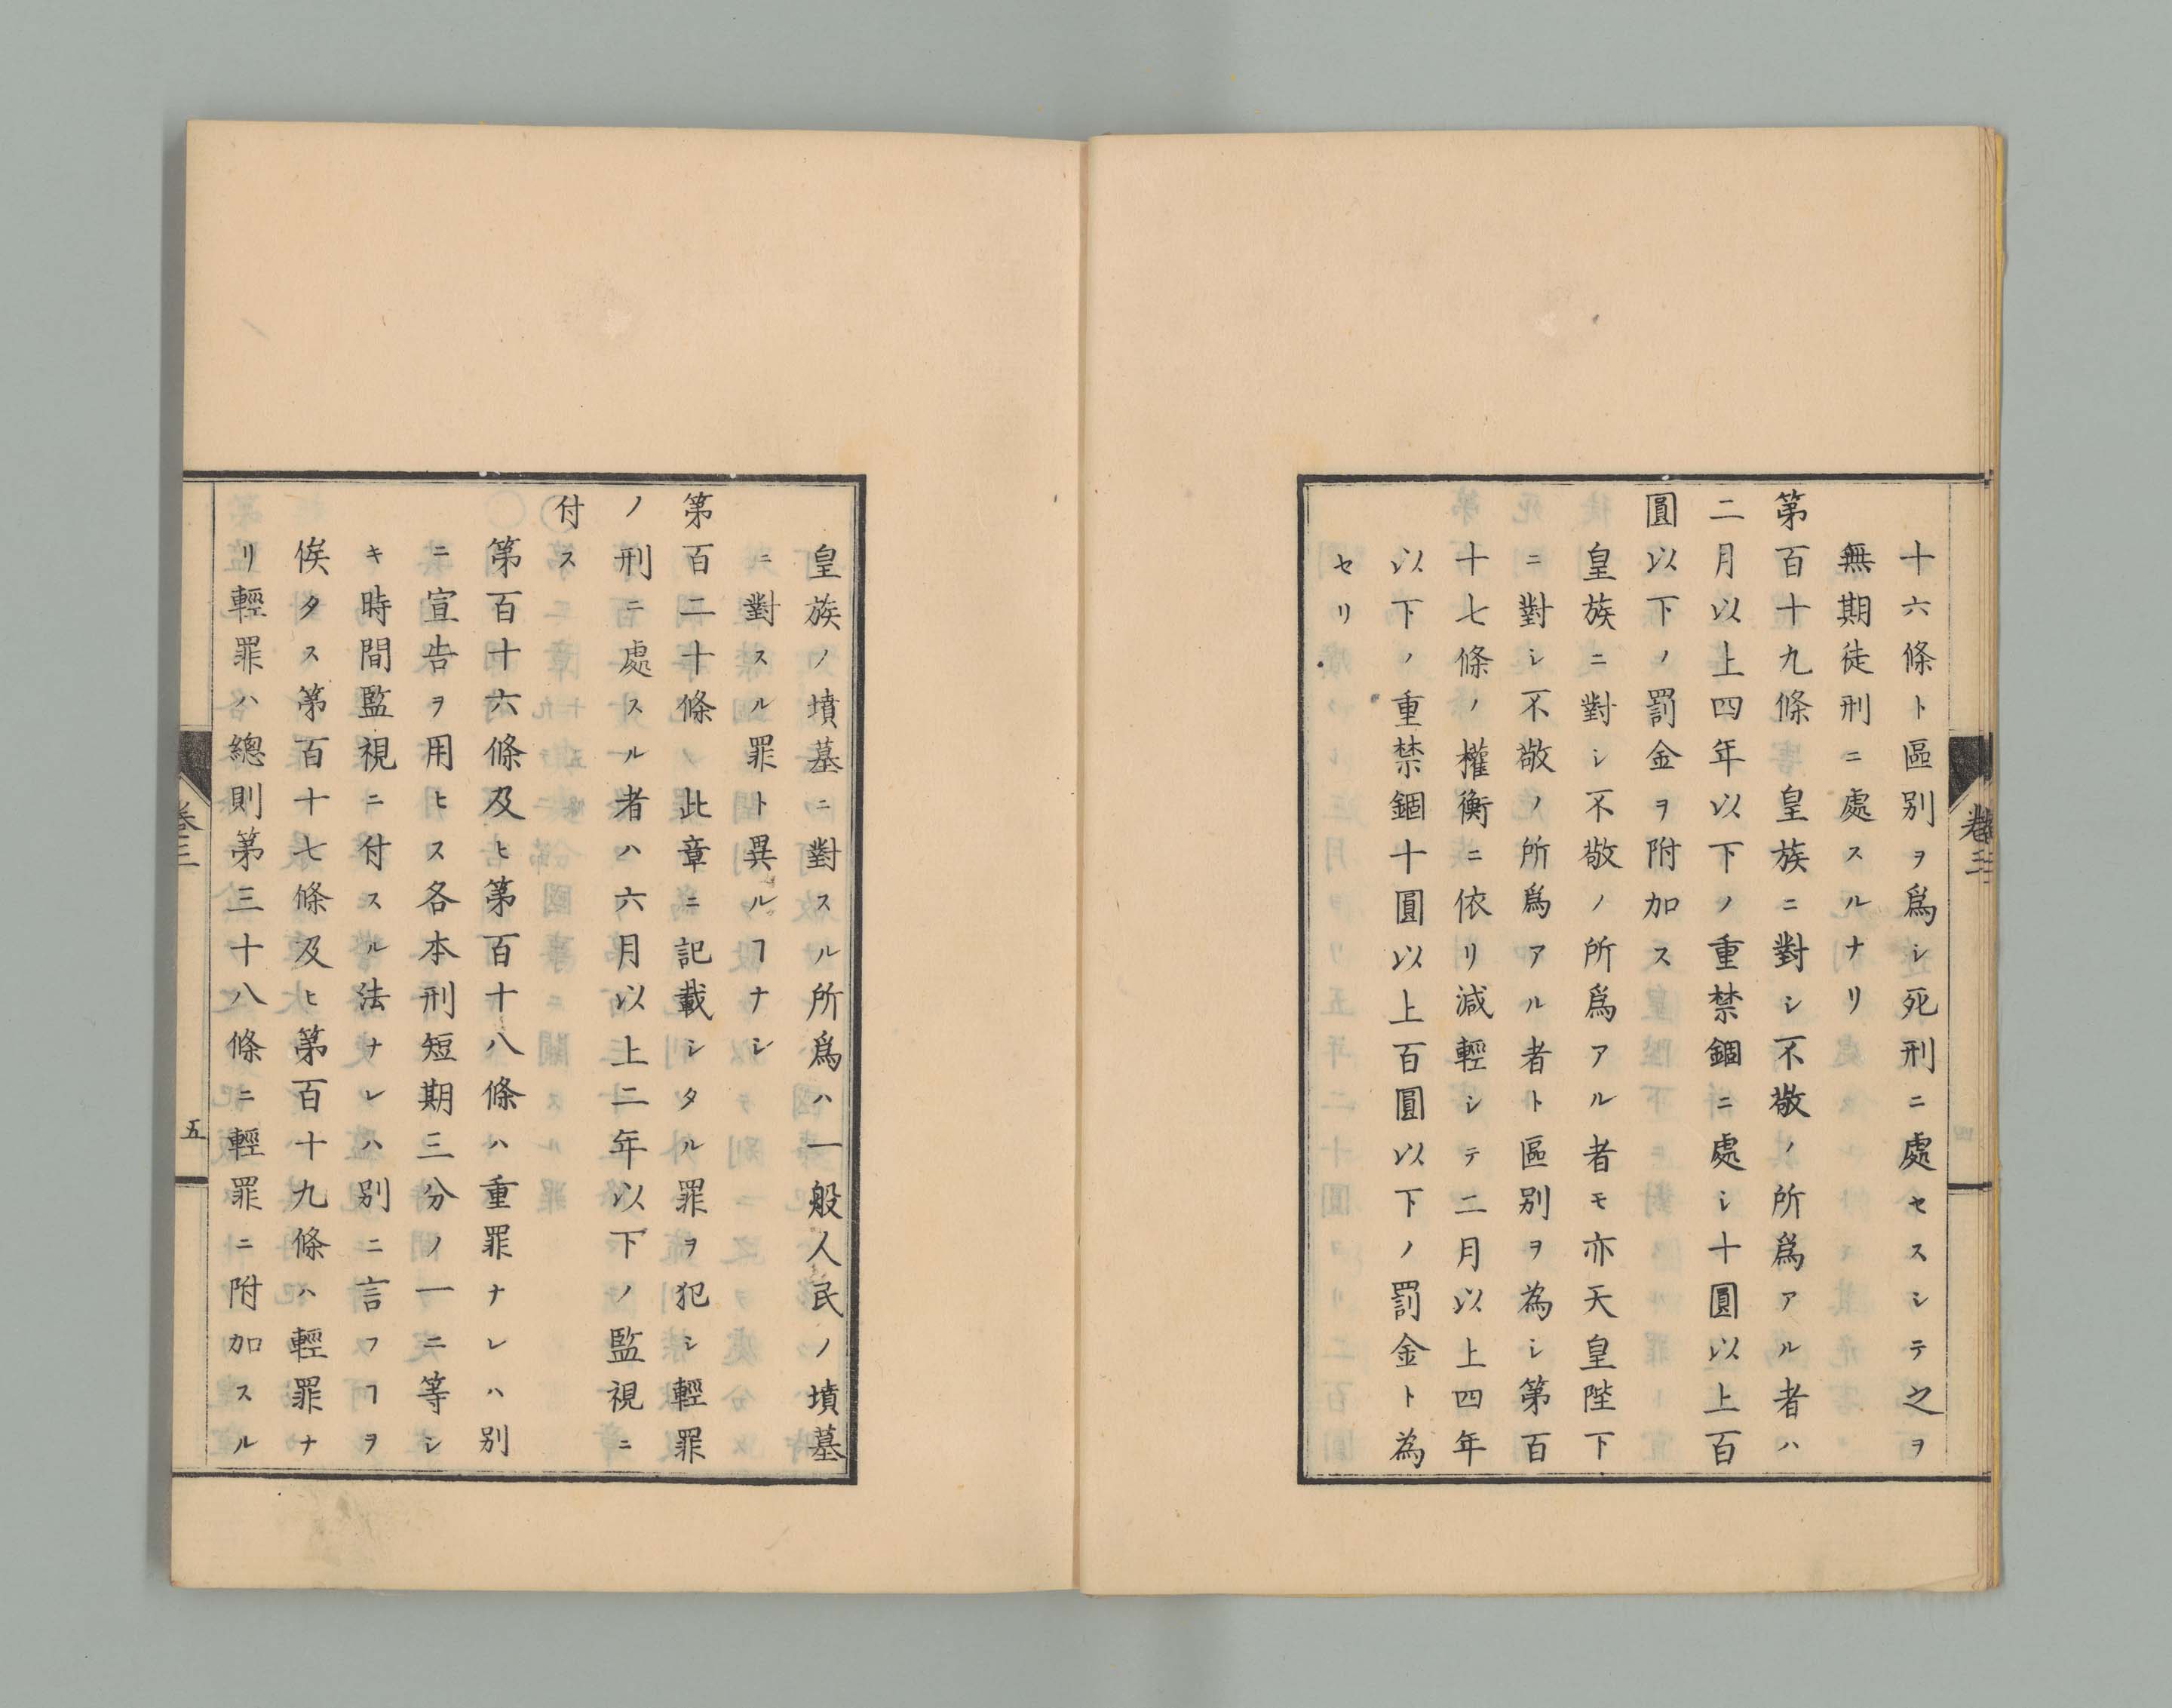 十六條ト區別ヲ爲シ死刑ニ處セスシテ之ヲ
無期徒刑ニ處スルナリ
第百十九條　皇族ニ對シ不敬ノ所爲アル者ハ
二月以上四年以下ノ重禁錮ニ處シ十圓以上百
圓以下ノ罰金ヲ附加ス
皇族ニ對シ不敬ノ所爲アル者モ亦天皇陛下
ニ對シ不敬ノ所爲アル者ト區別ヲ為シ第百
十七條ノ權衡ニ依リ減輕シテ二月以上四年
以下ノ重禁錮十圓以上百圓以下ノ罰金ト為
セリ
卷三
皇族ノ墳墓ニ對スル所爲ハ一般人民ノ墳墓
ニ對スル罪ト異ルヿナシ
第百二十條　此章ニ記載シタル罪ヲ犯シ輕罪
ノ刑ニ處スル者ハ六月以上二年以下ノ監視ニ
付ス
第百十六條及ヒ第百十八條ハ重罪ナレハ別
ニ宣告ヲ用ヒス各本刑短期三分ノ一ニ等シ
キ時間監視ニ付スル法ナレハ別ニ言フヿヲ
俟タス第百十七條及ヒ第百十九條ハ輕罪ナ
リ輕罪ハ總則第三十八條ニ輕罪ニ附加スル
卷三
五